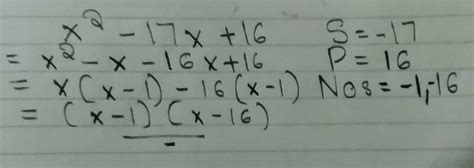 x² - 17x + 16 S = -17
= x² - x - 16x + 16 P = 16
= x(x-1) - 16(x-1) Nos = -1, -16
= (x-1)(x-16)